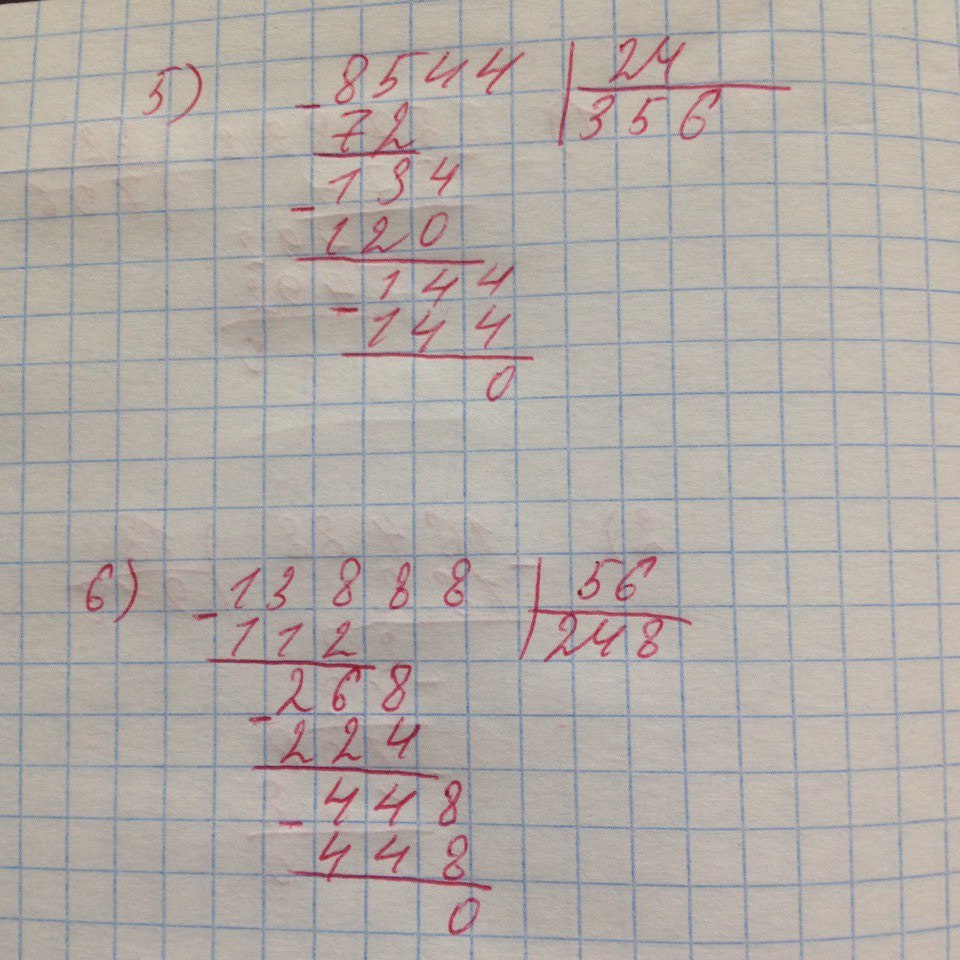 5) - 8544 | 24
72 | 356
- 134
120
- 144
144
0
6) - 13888 | 56
112 | 248
- 268
224
- 448
448
0